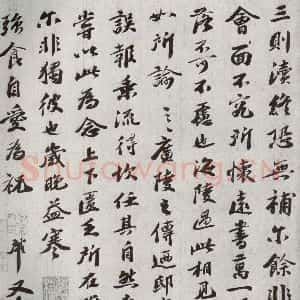 三則瀆終恐無補尔餘非
會面不究所懷遠書萬一
落不可不慮也海陵過此相見
如所諭廣陵之傳迺邸
誤報乘流得坎任其自然
嘗以此為念上下匱乏所在
尔非獨彼也歲晚益寒
強食自愛為祝 軾又
Shufawang.CN